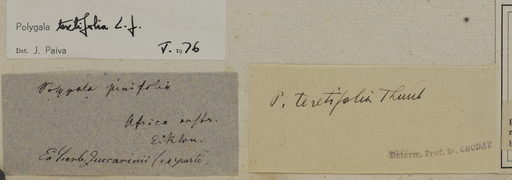 Polygala teretifolia L.f.
Det. J. Paiva V. 1976
Polygala pinifolia
Africa austr.
Ecklon.
Ex Herb. Zuccarinii (ex parte
P. teretifolia Thunb
Determ. Prof. Dr. CHODAT